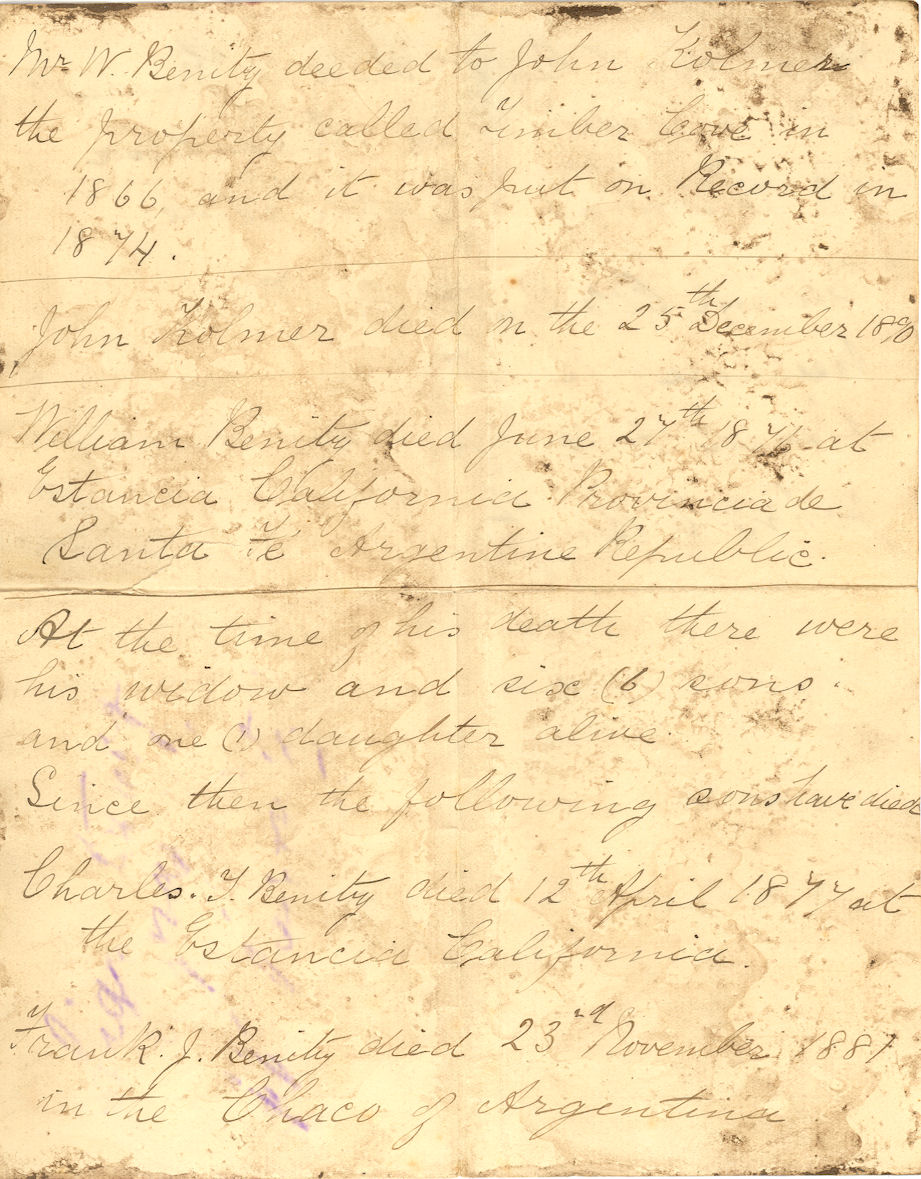 Mr W. Benity deeded to John Kolmer
the property called Timber Cove in
1866, and it was put on Record in
1874.
John Kolmer died on the 25th December
William Benity died June 27th at
Estancia California Provincia de
Santa Fé Argentine Republic.
At the time of his death there were
his widow and six (6) sons.
and one (1) daughter alive
Since then the following sons have died
Charles. T. Benity died 12th April 1877 at
the Estancia California.
Frank. J. Benity died 23rd November 1881
in the Chaco of Argentina